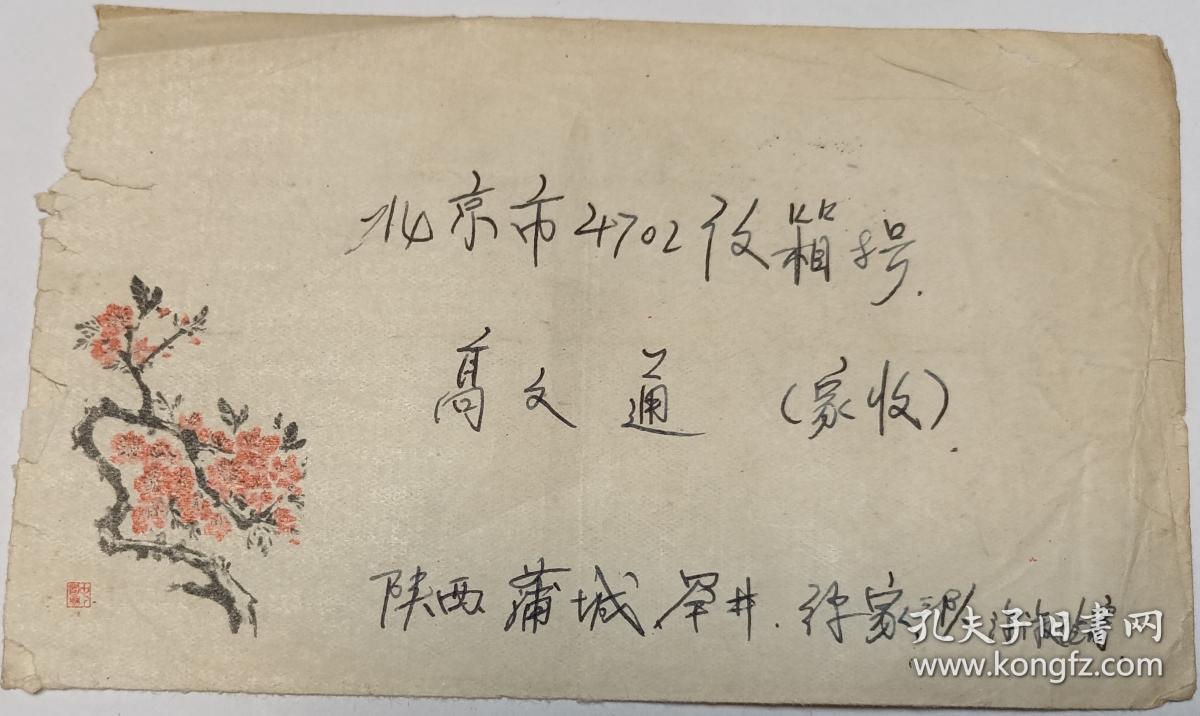 北京市4702信箱5号.
高文通 (家收).
陕西蒲城.罕井.许家
孔夫子旧书网
www.kongfz.com